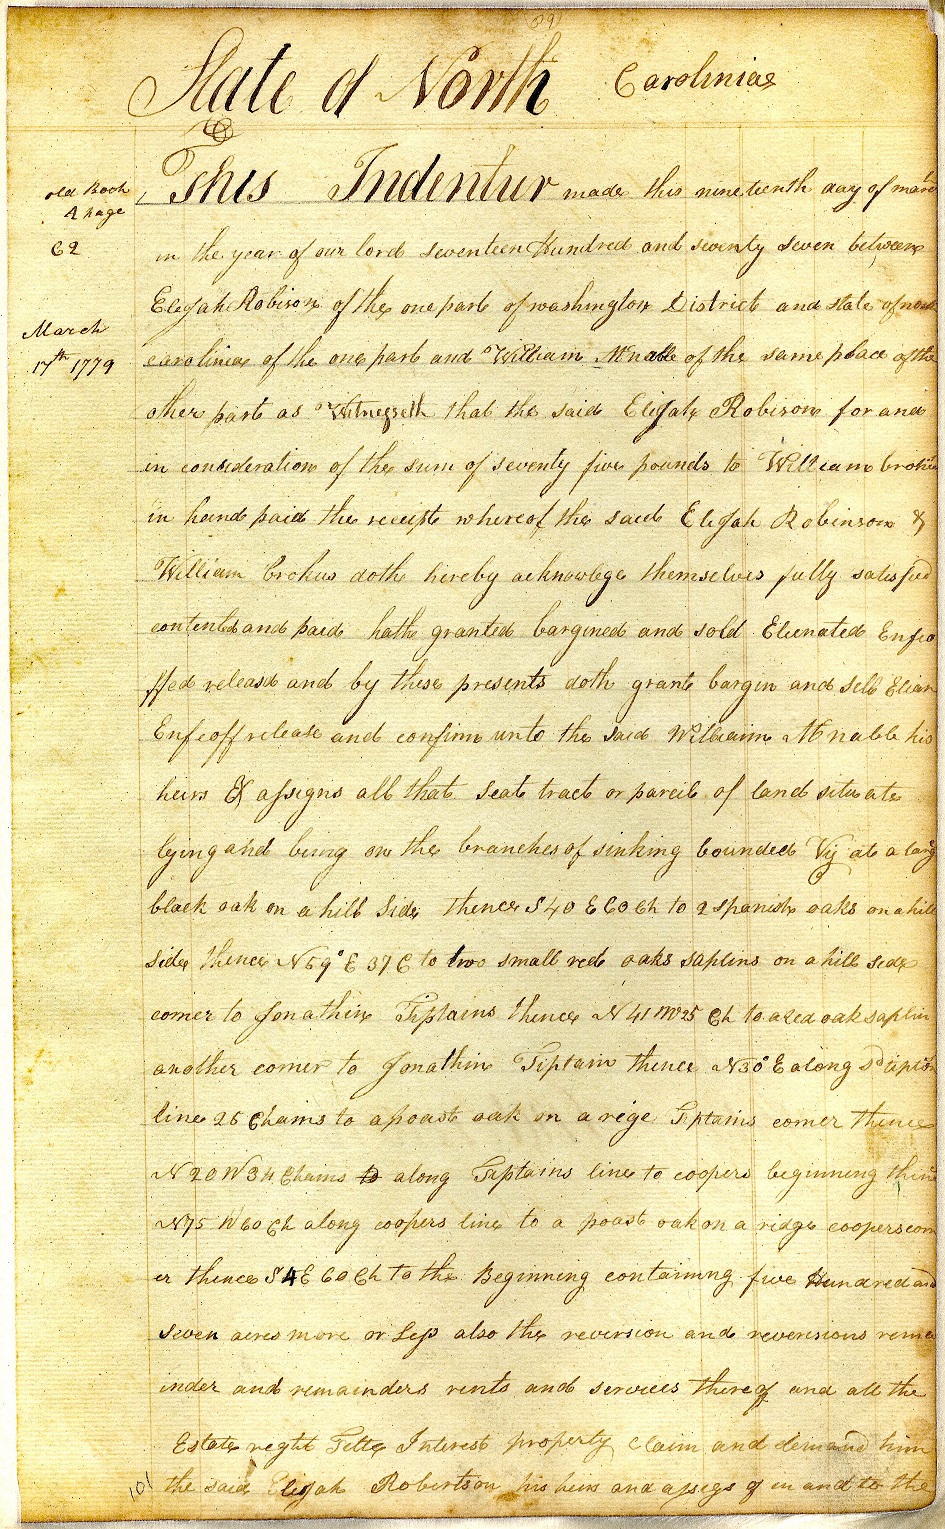 State of North Carolinia
This Indentur made this nineteenth day of march
old Book
A page
62
in the year of our lord seventeen Hundred and seventy seven between
Elijah Robison of the one part of washington District and state of north
March
17th 1779
carolinia of the one part and William Mcnabb of the same place of the
other part as Witnesseth that the said Elijah Robison for and
in consideration of the sum of seventy five pounds to William
in hand paid the receipt whereof the said Elijah Robinson &
William Crokus doth hereby acknowlege themselves fully satisfied
contented and paid hath granted bargined and sold Elienated Enfeo
ffed releasd and by these presents doth grant bargin and sell Elian
Enfeoff release and confirm unto the said William Mcnabb his
heirs & assigns all that seat tract or parcil of land situate
lying and being on the branches of sinking bounded Vij at a larg
black oak on a hill Side thence S 40 E 60 Ch to 2 spanish oaks on a hill
side thence N 59° E 37 C to two small red oaks saplins on a hill side
corner to Jonathin Tiptains thence N 41 W 25 Ch to a red oak saplin
another corner to Jonathin Tiptain thence N 30° E along sd
line 25 Chains to a poast oak on a rige Tiptains corner thence
N 20 W 34 Chains to along Taptains line to coopers beginning thence
N 75 W 60 Ch along coopers line to a poast oak on a ridge coopers corn
er thence S 4 E 60 Ch to the Beginning containing five Hundred and
seven acres more or Less also the reversion and reversions rema
inder and remainders rents and services thereof and all the
Estate reght Tette Interest property claim and demand him
101
the said Elijah Robertson his heirs and assigs of in and to the